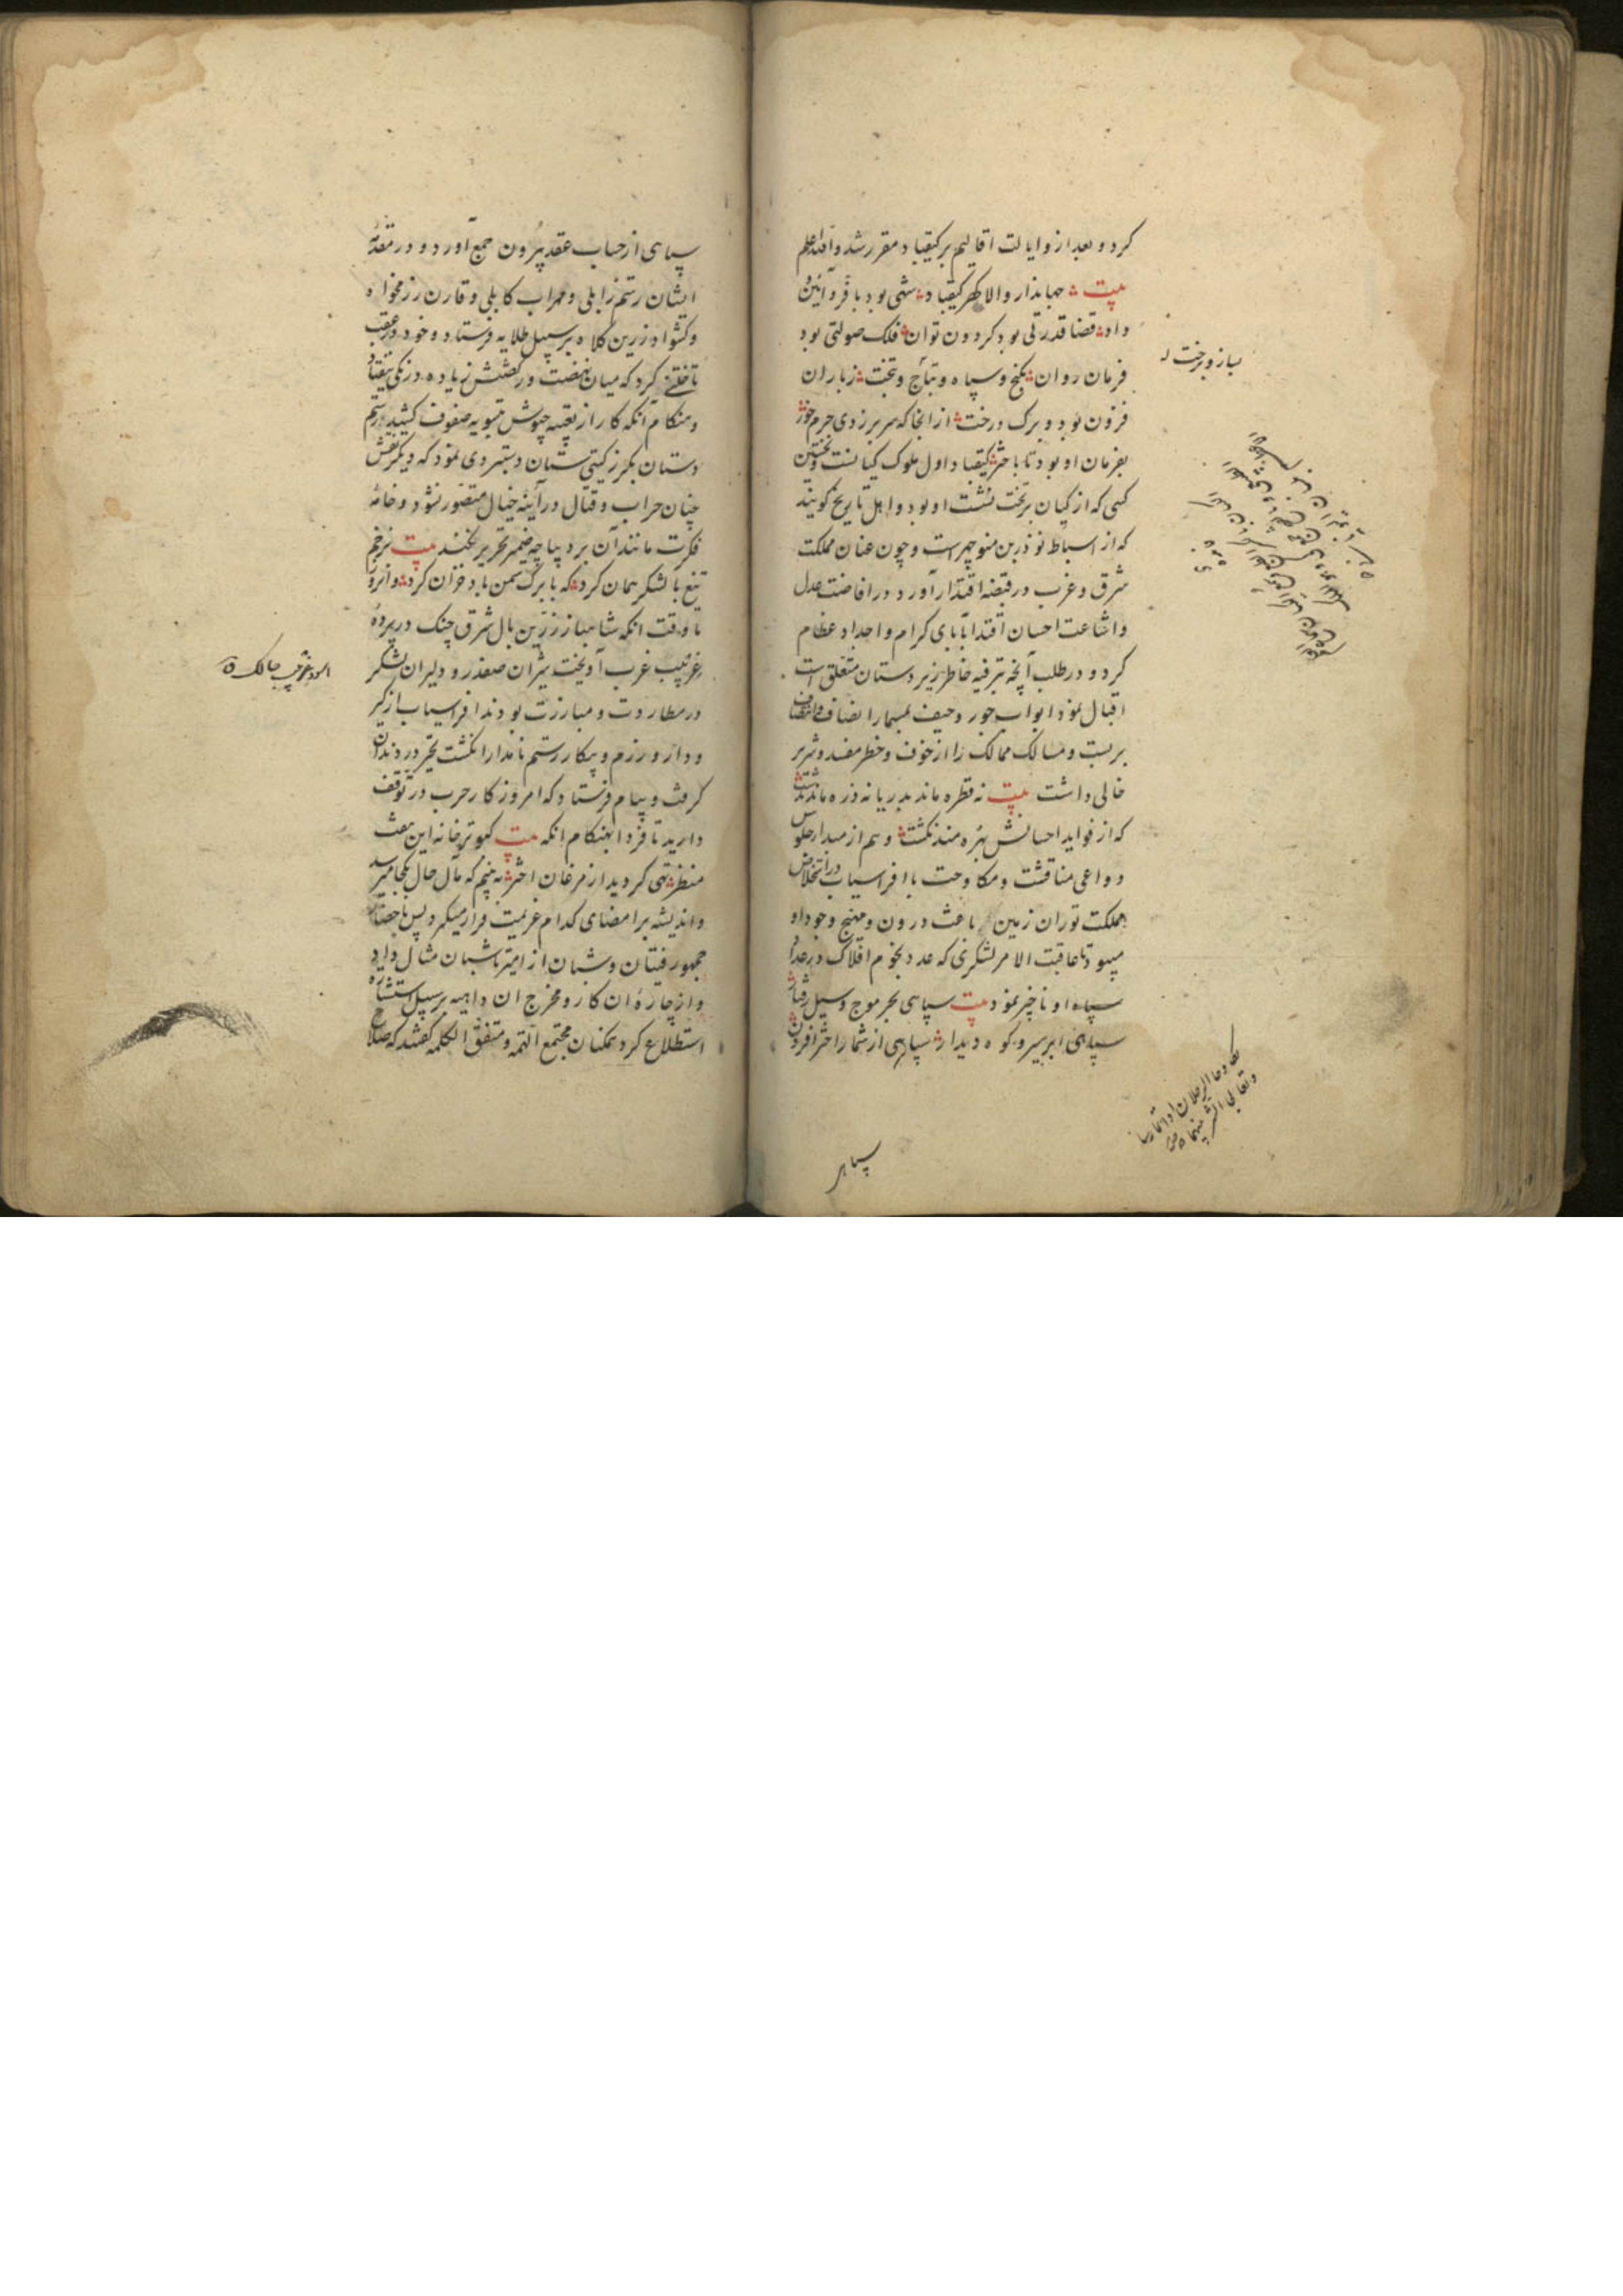 کرد و بعد از و ایالت اقالیم بر کیقباد مقرر شد و
بیت جهاندار والا کهر کیقباد شهی بود با فر و آئین و
داد قضا قدرتی بود کردون توان فلک صولتی بود
فرمان روان بکنج و سپاه و بتاج و بتخت ز باران
فزون بود و برک درخت از انجا که سر بر زدی جرم خور
بفرمان او بود تا باختر کیقباد اول ملوک کیانست و نخستین
کسی که از کیان بر تخت نشست او بود و اهل تاریخ کویند
که از اسباط نوذر بن منوچهرست و چون عنان مملکت
شرق و غرب در قبضه اقتدار آورد در افاضت عدل
و اشاعت احسان اقتدا بآبای کرام و اجداد عظام
کرد و در طلب آنچه بترفیه خاطر زیر دستان متعلق است
اقبال نمود ابواب جور و حیف بمسمار انصاف و انتصاف
بر بست و مسالک ممالک را از خوف و خطر مفسد و شریر
خالی داشت بیت نه قطره ماند بدریا نه ذره ماند بدشت
که از فواید احسانش بهره مند نکشت و هم از مبدا جلوس
دواعی مناقشت و مکاوحت با افراسیاب در استخلاص
مملکت توران زمین باعث درون و مهیج وجود او
میبود تا عاقبت الامر لشکری که عدد نجوم افلاک در عداد
سپاه او ناچیز نمود بیت سپاهی بحر موج و سیل رفتار
سپاهی ابر سیر و کوه دیدار سپاهی از شمار اختر افزون
بساز و برخت له
سپاهی
سپاهی از حساب عقد بیرون جمع آورد و در مقدمه
ایشان رستم زابلی و مهراب کابلی و قارن رزمخواه
و کشواد زرین کلاه بر سبیل طلایه فرستاد و خود در عقب
تاختنی کرد که میان نهضت و رکضتش زیاده درنکی نیفتاد
و هنکام آنکه کار از تعبیه جیوش بتسویه صفوف کشید رستم
دستان بکرز کیتی ستان دستبردی نمود که دیکر نقش
چنان حراب و قتال در آینه خیال متصور نشود و خامه
فکرت مانند آن بر دیباچه ضمیر تحریر نکند بیت بزخم
تیغ با لشکر همان کرد که با برک سمن باد خزان کرد و آنروز
تا وقت آنکه شاهباز زرین بال شرق چنک در پرده
غربیب غرب آویخت شیران صفدر و دلیران لشکر
در مطاردت و مبارزت بودند افراسیاب از کیر
و دار و رزم و پیکار رستم نامدار انکشت تحیر در دندان
کرفت و پیام فرستاد که امروز کار حرب در توقف
دارید تا فردا بهنکام آنکه بیت کبوتر خانه این هفت
منظر تهی کردید از مرغان اختر به بینم که مآل حال بکجا میرسد
و اندیشه بر امضای کدام عزیمت قرار میکیرد پس باحضار
جمهور فتیان و شبان از امیر تا شبان مثال داد
و از چاره ان کار و مخرج ان داهیه بر سبیل استشاره
استطلاع کرد همکنان مجتمع الهمه و متفق الکلمه کفتند که صلاح